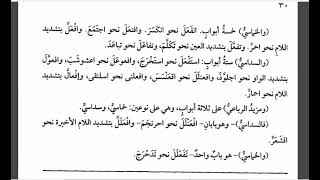 ٣٠
(والخماسيُّ) خمسة أبواب. انفَعَلَ نحو انكَسَرَ. وافتعَلَ نحو اجتَمَعَ. وافْعَلَّ بتشديد
اللام نحو احمرَّ. وتفعَّل بتشديد العين نحو تكلَّم، وتفاعَلَ نحو تباعَدَ.
(والسداسيُّ) ستة أبواب: استَفْعَلَ نحو استَخْرَجَ، وافعوعَلَ نحو اعشوشَبَ، وافعوَّلَ
بتشديد الواو نحو اجلوَّذَ، وافعنْلَلَ نحو اقعَنْسَسَ، وافعنلى نحو اسلنقى، وافعالَّ بتشديد
اللام نحو احمارَّ.
(ومزيدُ الرباعيِّ) على ثلاثة أبواب، وهي على نوعين: خماسيّ، وسداسيّ.
(فالسداسيُّ) -وهو بابان- افْعَنْلَلَ نحو احرنجَمَ - وافْعَلَلَّ بتشديد اللام الأخيرة نحو
اقشَعَرَّ.
(والخماسيُّ) -هو بابٌ واحدٌ- تَفَعْلَلَ نحو تَدَحْرَجَ.